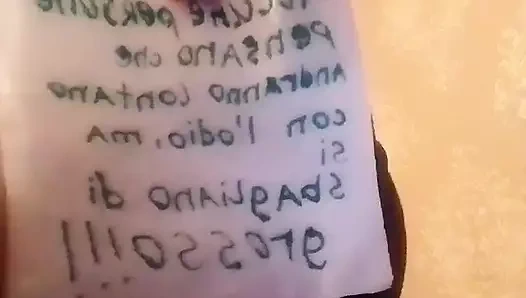 Alcune persone
pensano che
andranno lontano
con l'odio, ma
si
sbagliano di
grosso!!!